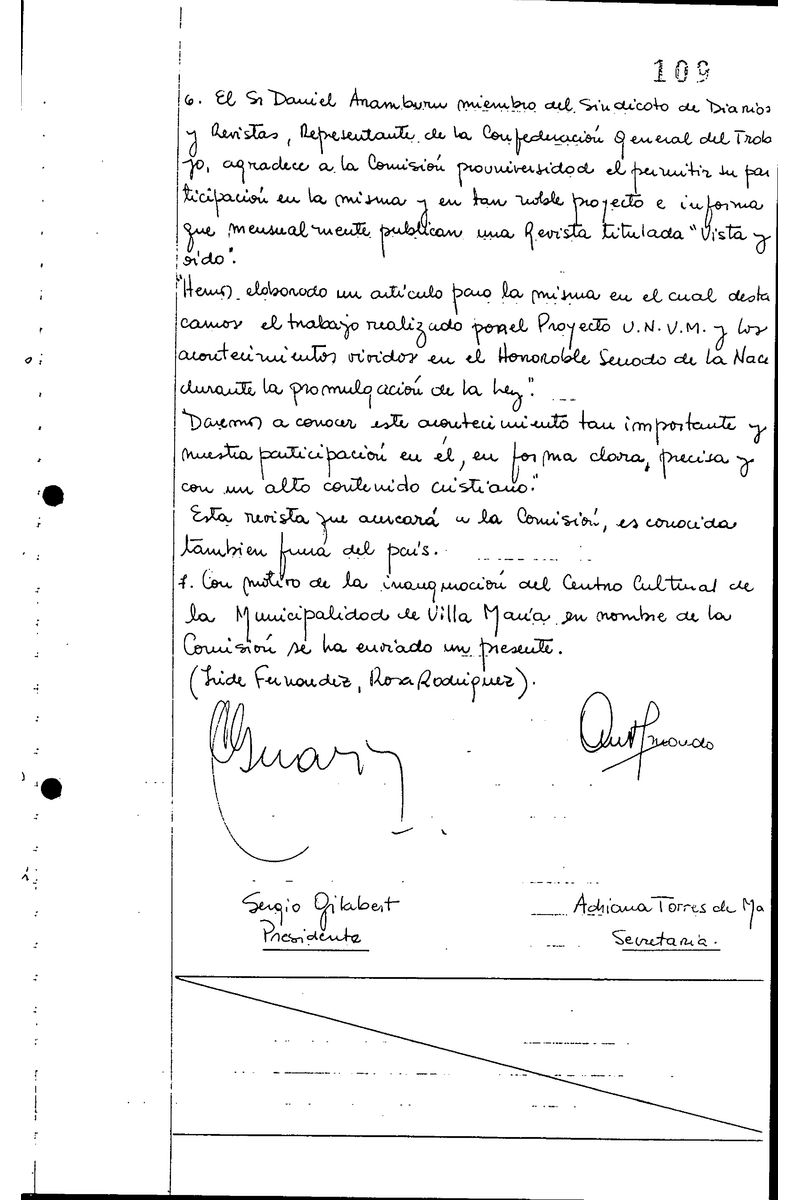 109
6. El Sr Daniel Aramburu miembro del Sindicato de Diarios
y Revistas, Representante de la Confederación General del Trab
jo, agradece a la Comisión prouniversidad el permitir su par
ticipación en la misma y en tan noble proyecto e informa
que mensualmente publican una Revista titulada "Vista y
oido".
"Hemos elaborado un artículo para la misma en el cual desta
camos el trabajo realizado por el Proyecto U.N.V.M. y los
acontecimientos vividos en el Honorable Senado de la Nac
durante la promulgación de la Ley".
"Daremos a conocer este acontecimiento tan importante y
nuestra participación en él, en forma clara, precisa y
con un alto contenido cristiano."
Esta revista que acercará a la Comisión, es conocida
tambien fuera del país.
7. Con motivo de la inauguración del Centro Cultural de
la Municipalidad de Villa María en nombre de la
Comisión se ha enviado un presente.
(Iride Fernandez, Rosa Rodriguez).
Sergio Gilabert
Adriana Torres de Ma
Presidente
Secretaria.